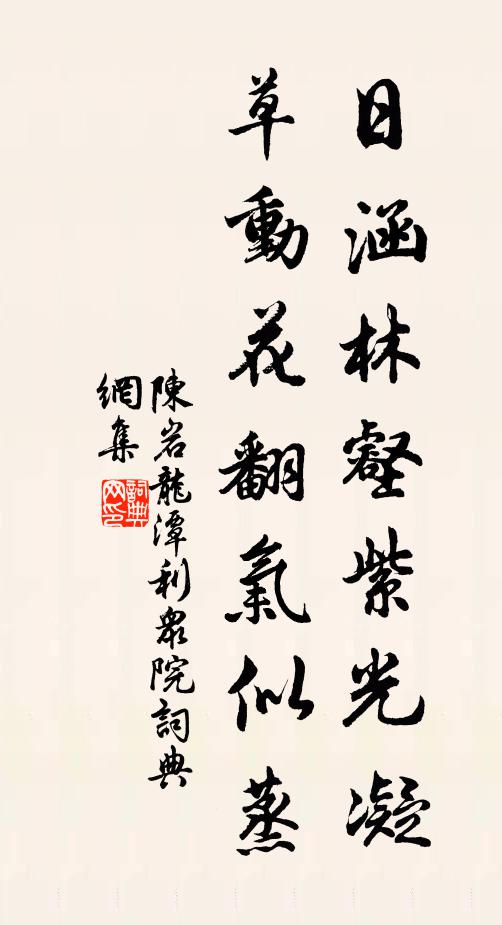 日涵林壑紫光凝
草動花翻氣似蒸
陳岩龍潭利眾院詞典
網集
詞典
网印